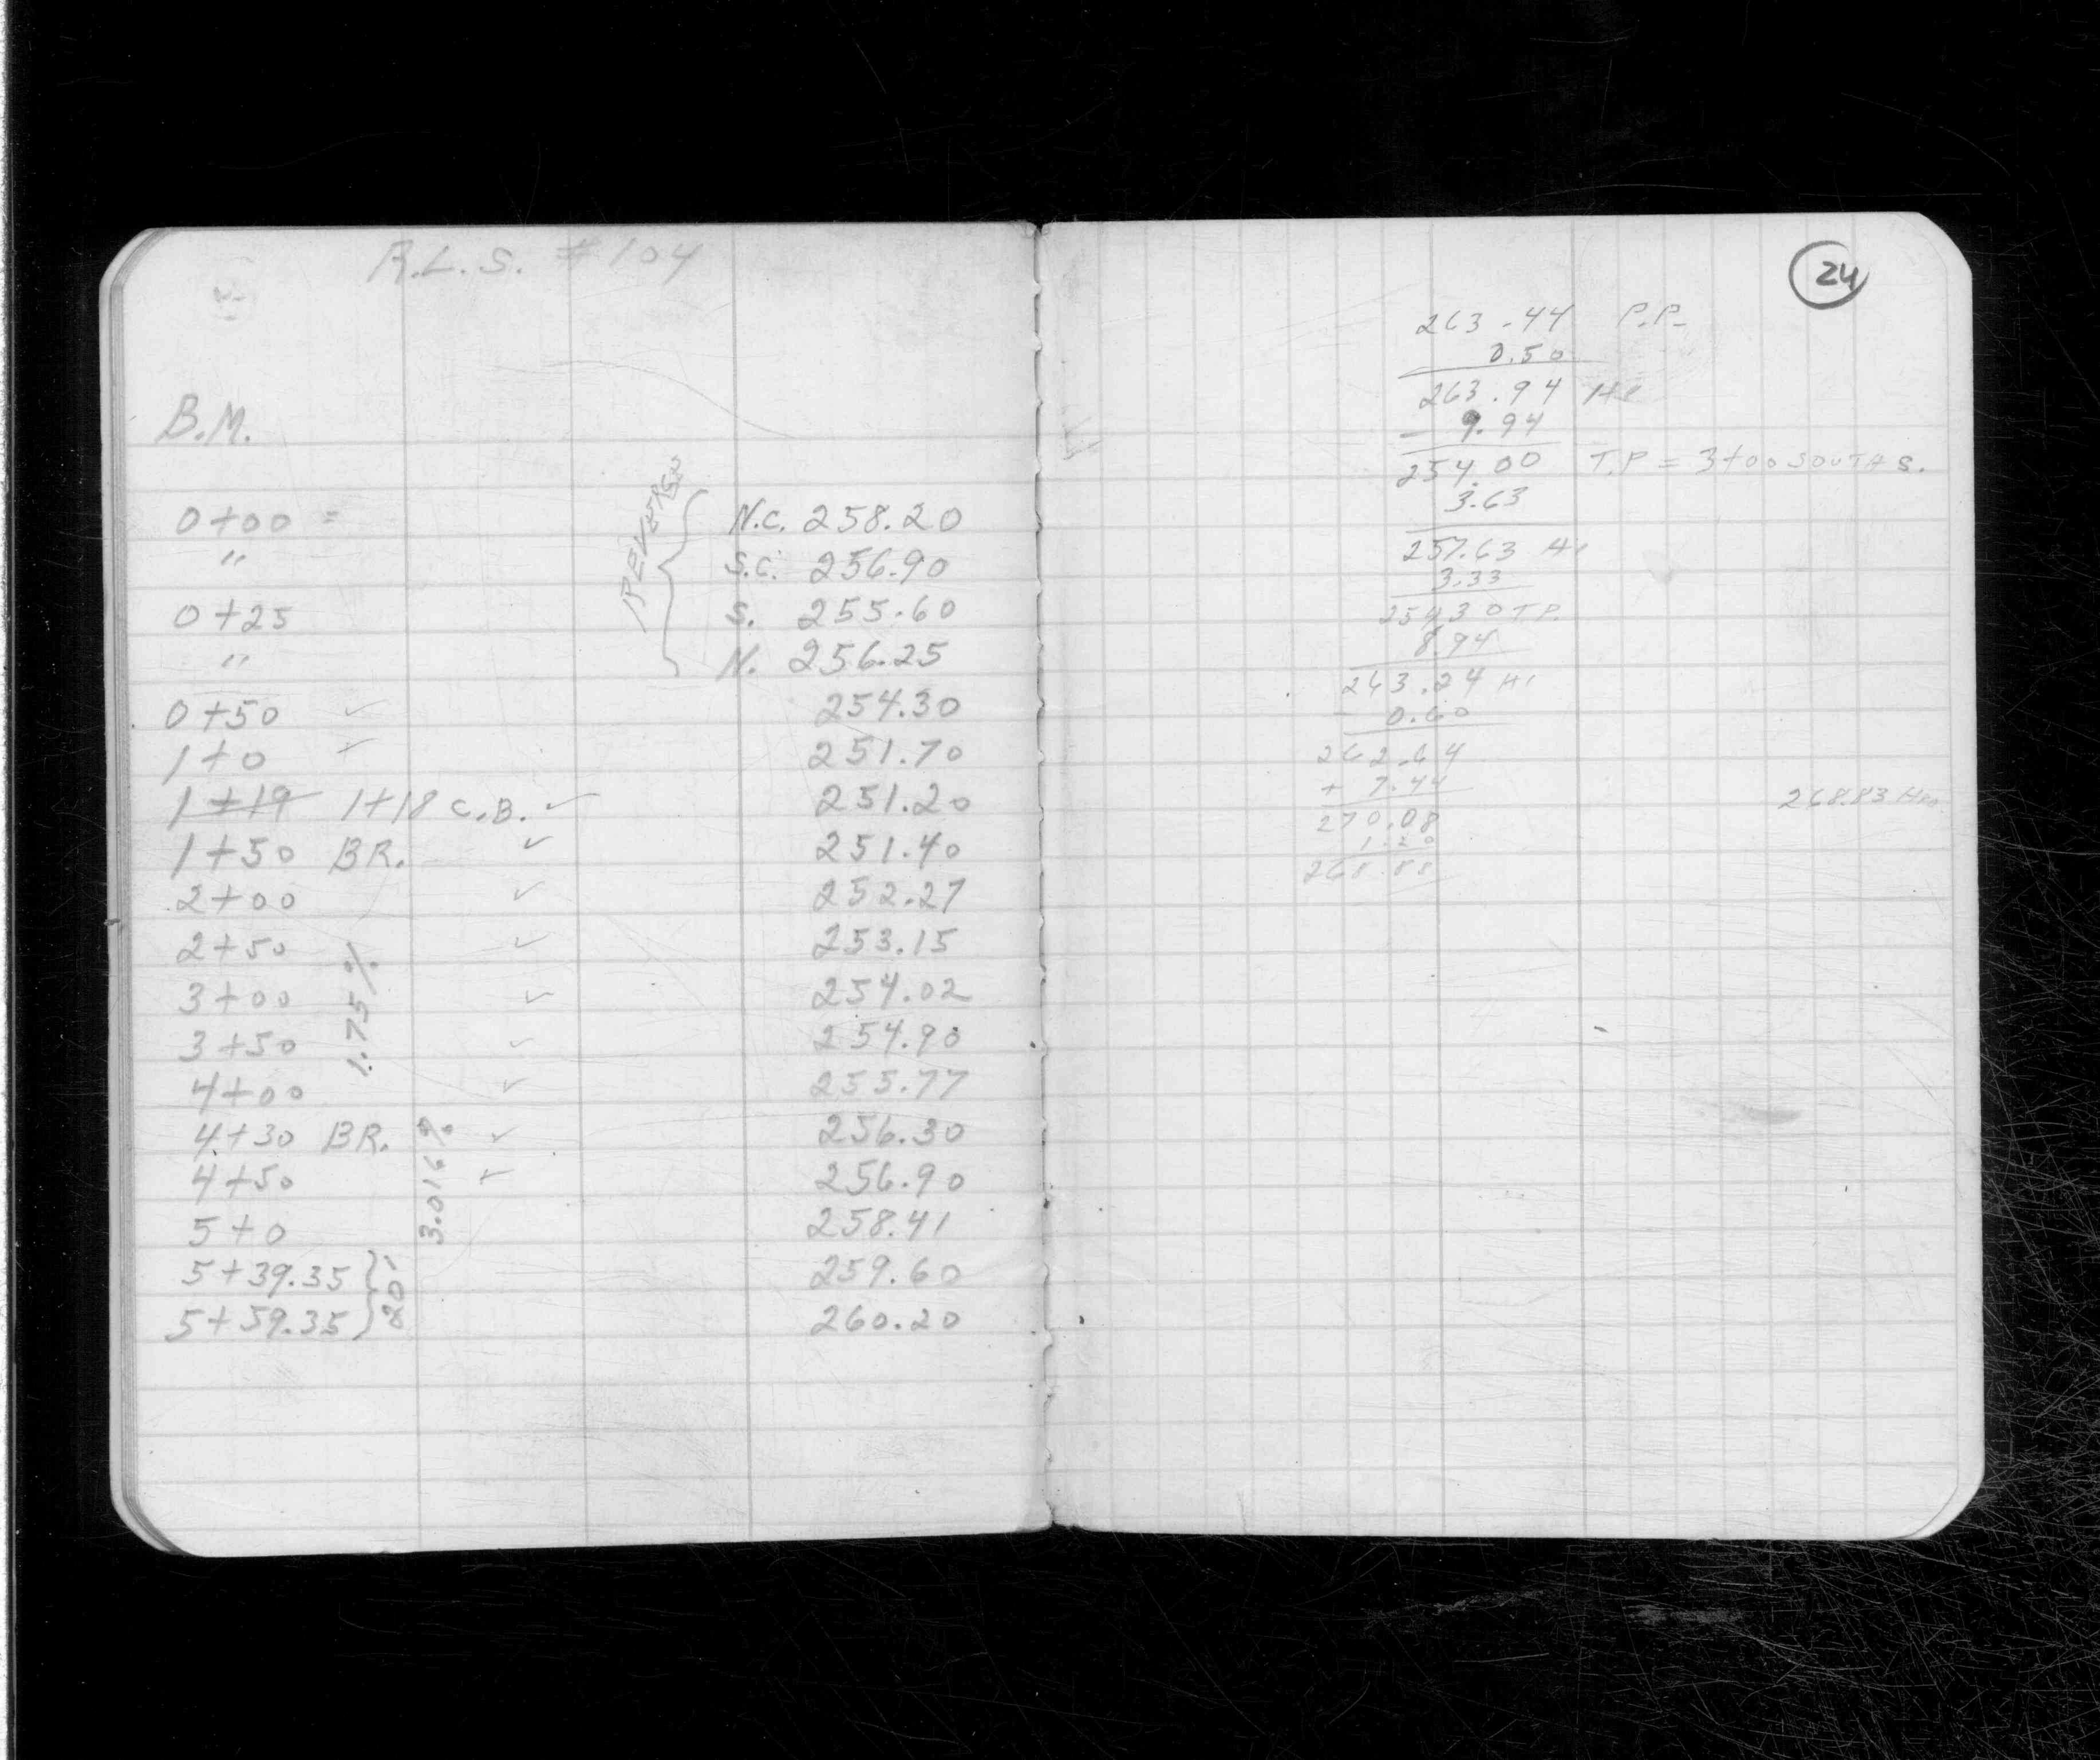 R.L.S. #104
B.M.
REVERSED
0+00 = N.C. 258.20
" S.C. 256.90
0+25 S. 255.60
" N. 256.25
0+50 ✓ 254.30
1+0 ✓ 251.70
1+19 1+18 C.B. ✓ 251.20
1+50 BR. ✓ 251.40
2+00 ✓ 252.27
2+50 ✓ 253.15
3+00 ✓ 254.02
1.75%
3+50 ✓ 254.90
4+00 ✓ 255.77
4+30 BR. ✓ 256.30
4+50 ✓ 256.90
3.016%
5+0 258.41
5+39.35 259.60
20'
5+59.35 260.20
24
263.44 P.P.
0.50
263.94 HI
- 9.94
254.00 T.P = 3+00 SOUTH S.
3.63
257.63 HI
3.33
254.30 T.P.
8.94
263.24 HI
- 0.60
262.64
+ 7.44
270.08
1.20
268.88
268.83